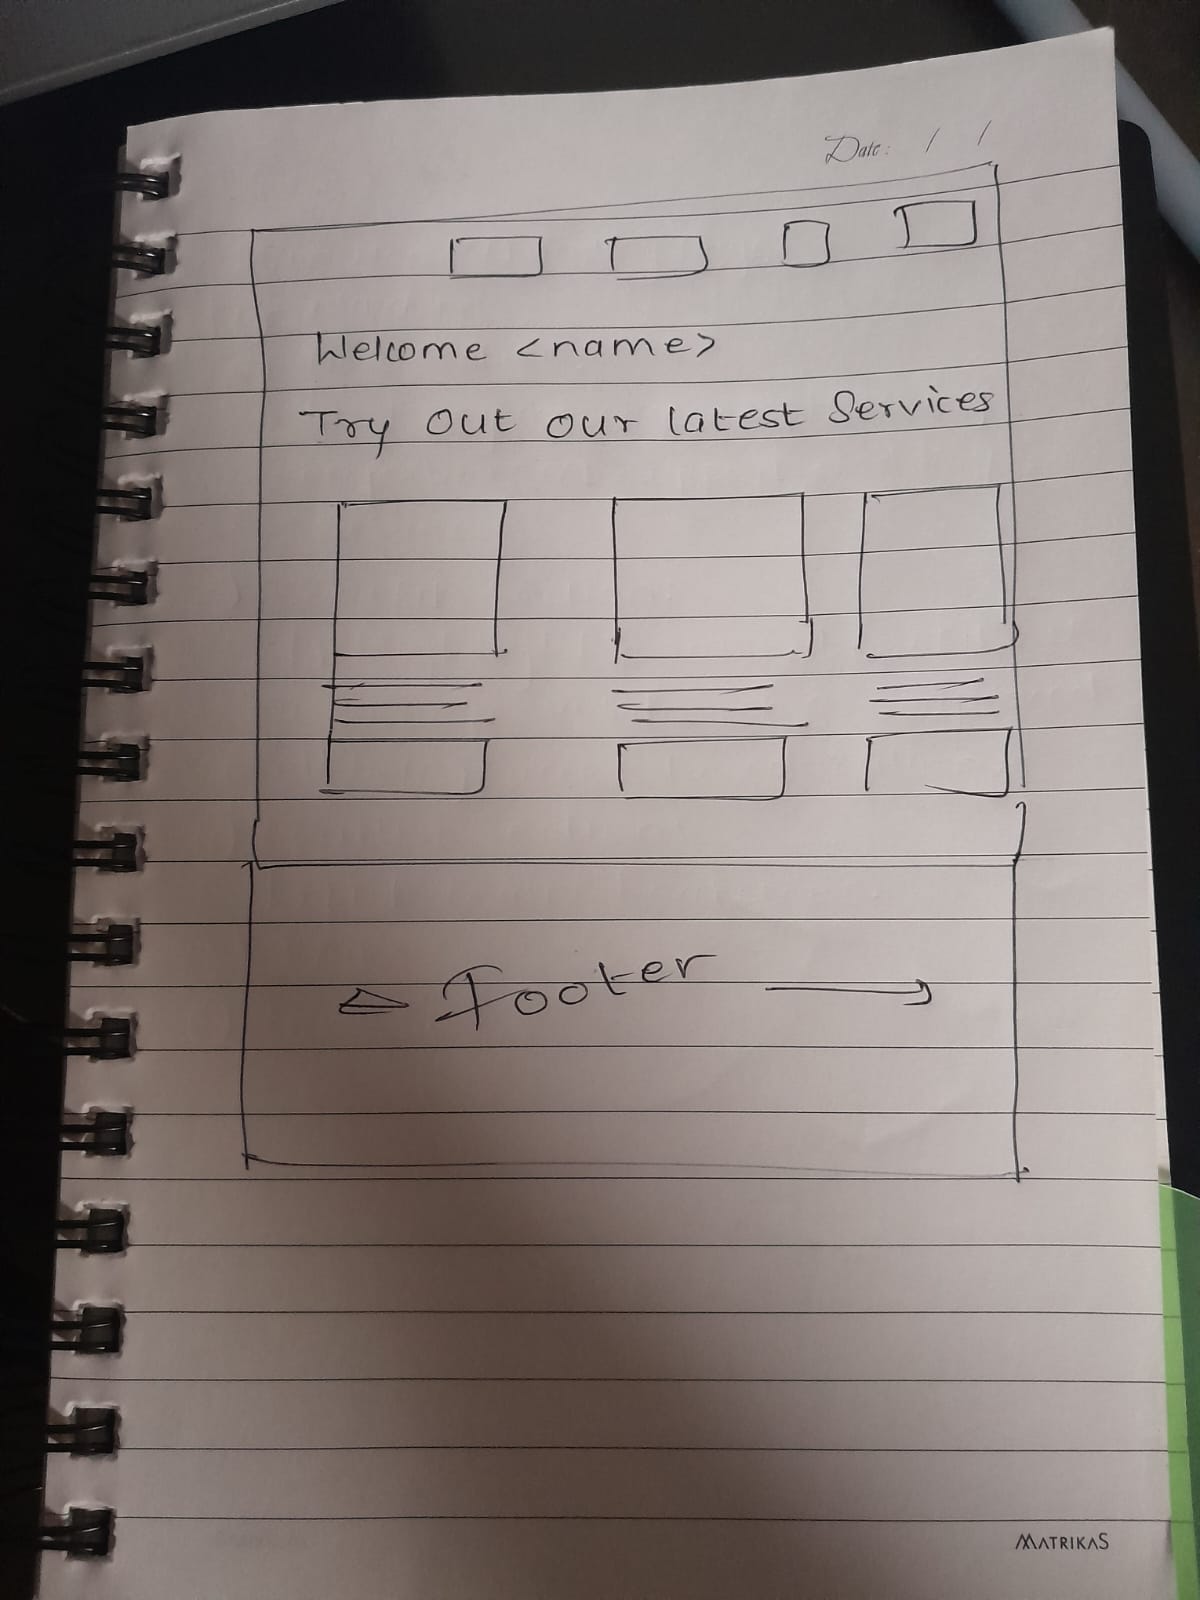 Date: / /
Welcome <name>
Try out our latest Services
Footer
MATRIKAS